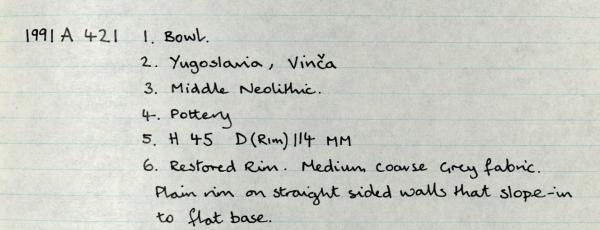 1991 A 421 1. Bowl.
2. Yugoslavia, Vinča
3. Middle Neolithic.
4. Pottery
5. H 45 D(Rim) 114 MM
6. Restored Rim. Medium coarse Grey fabric.
Plain rim on straight sided walls that slope-in
to flat base.